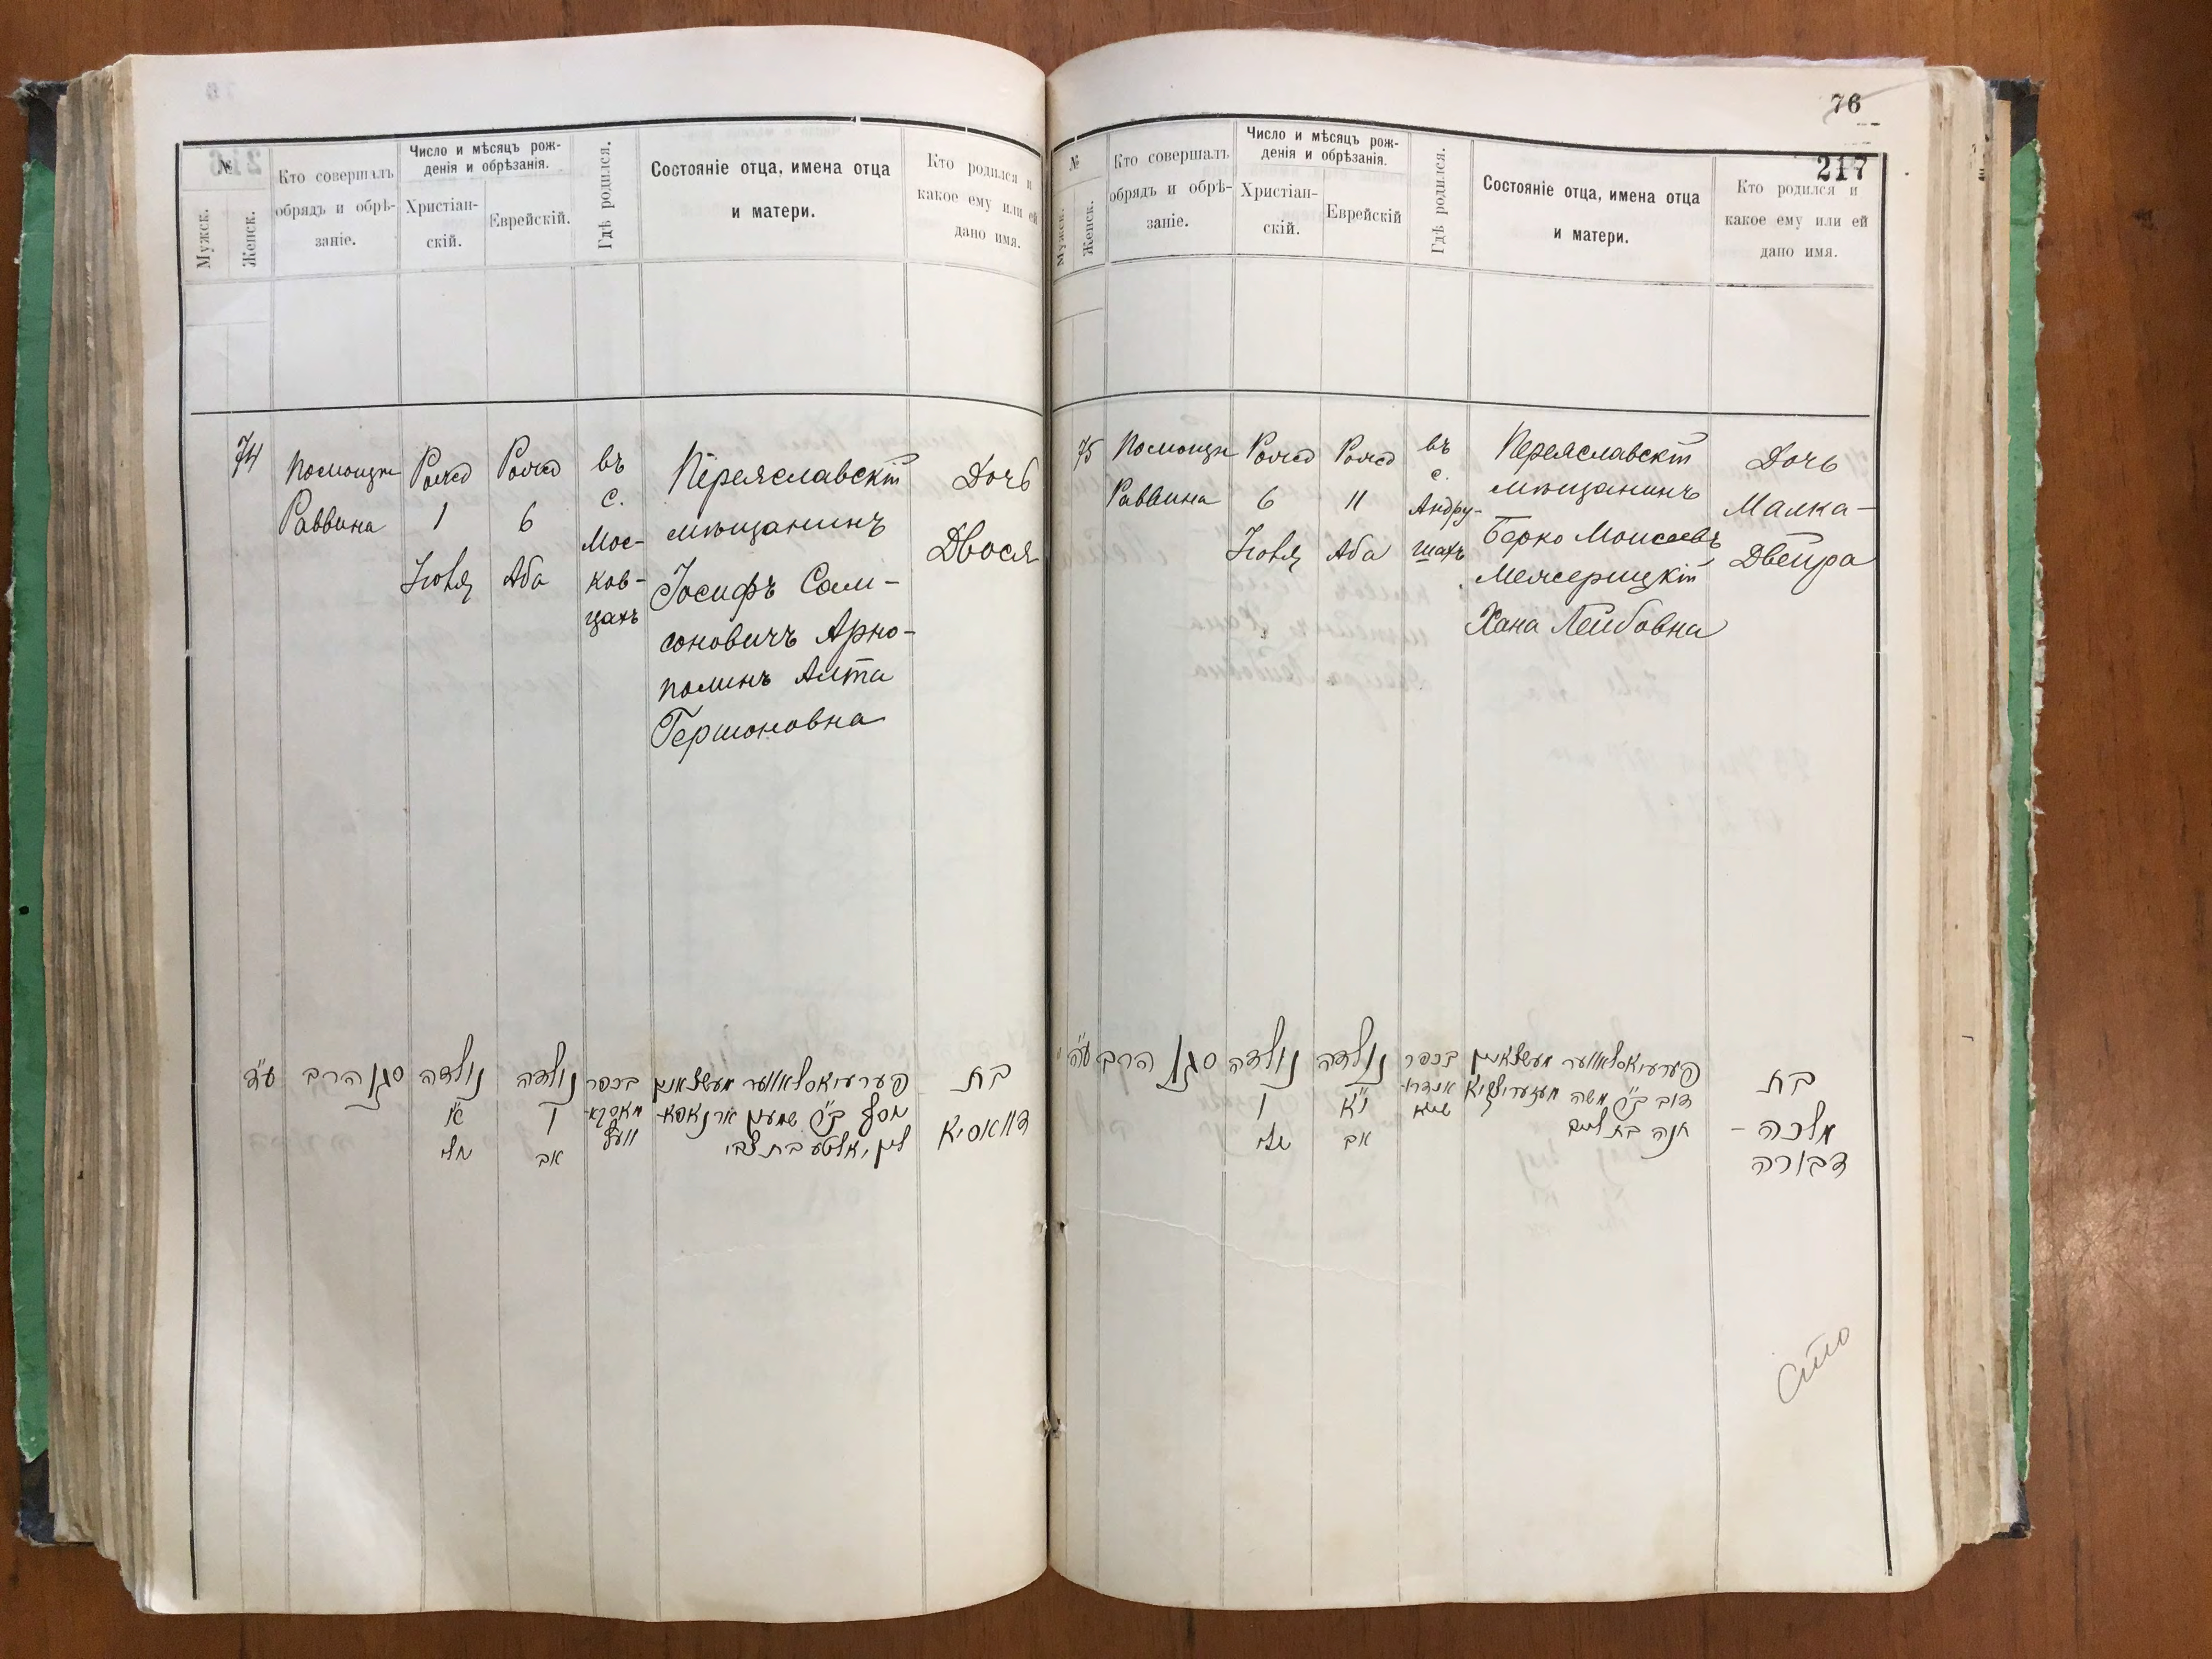 76
217
№
Мужск.
Женск.
Кто совершалъ
обрядъ и обрѣ-
заніе.
Число и мѣсяцъ рож-
денія и обрѣзанія.
Христіан-
скій.
Еврейскій.
Гдѣ родился.
Состояніе отца, имена отца
и матери.
Кто родился и
какое ему или ей
дано имя.
74
Помощн
Раввина
Рожд
1
Іюля
Рожд
6
Аба
въ
с.
Мос-
ков-
цахъ
Переяславскій
мѣщанинъ
Іосифъ Сам-
соновичъ Арно-
полинъ Алта
Гершоновна
Дочь
Двося
ע״ד
סגן הרב
נולדה
א׳
יולי
נולדה
ו
אב
בכפר
מאסקא-
וועץ
פערעיאסלאווער מעשצאנין
יוסף ב״ר שמעון ארנאפא-
לין, אלטע בת צבי
בת
דוואסיא
№
Мужск.
Женск.
Кто совершалъ
обрядъ и обрѣ-
заніе.
Число и мѣсяцъ рож-
денія и обрѣзанія.
Христіан-
скій.
Еврейскій
Гдѣ родился.
Состояніе отца, имена отца
и матери.
Кто родился и
какое ему или ей
дано имя.
75
Помощн
Раввина
Рожд
6
Іюля
Рожд
11
Аба
въ
с.
Андру-
шахъ
Переяславскій
мѣщанинъ
Берко Моисеевъ
Межерицкій
Хана Лейбовна
Дочь
Малка-
Двейра
ע״ה
סגן הרב
נולדה
ו
יולי
נולדה
י״א
אב
בכפר
אנדרו-
פערעיאסלאווער מעשצאנין
דוב ב״ר משה מעזעריצקיא
חנה בת
בת
מלכה -
דבורה